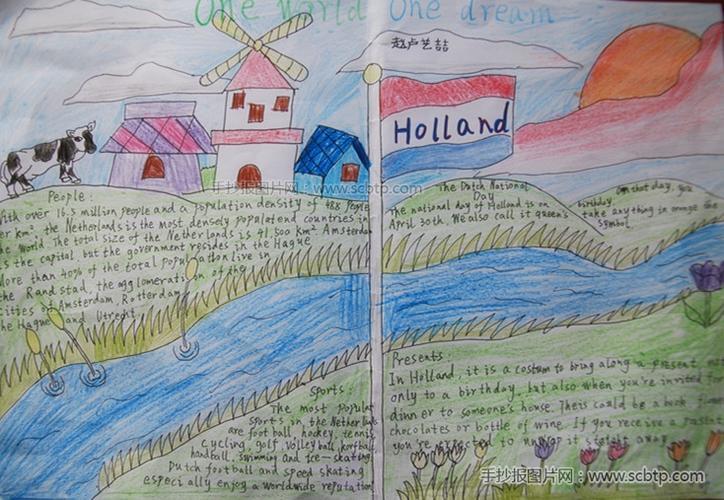 One world One dream
赵卢艺喆
Holland
People:
With over 16.5 million people and a population density of 488 people
per km², the Netherlands is the most densely populatend countries in
the World. The total size of the Netherlands is 41,500 km² Amsterdam
is the capital, but the government resides in the Hague
More than 40% of the total population live in
the Randstad, the agglomeration of the
cities of Amsterdam, Rotterdam,
the Hague and Utrecht.
The Dutch National
Day
The national day of Holland is on
April 30th. We also call it queen's
birthday
on that day, you
take anything in orange the
symbol.
Sports:
The most popular
sports in the Netherlands
are football, hockey, tennis,
cycling, golf, volleyball, korfball,
handball, swimming and ice-skating.
Dutch football and speed skating
especially enjoy a worldwide reputation
Presents:
In Holland, it is a costum to bring along a present, not
only to a birthday, but also when you're invited for
dinner to someone's house. Theis could be a book, flowers
chocolates or bottle of wine. If you receive a present
you're expected to unwrap it staight away.
手抄报图片网:www.scbtp.com
手抄报图片网:www.scbtp.com